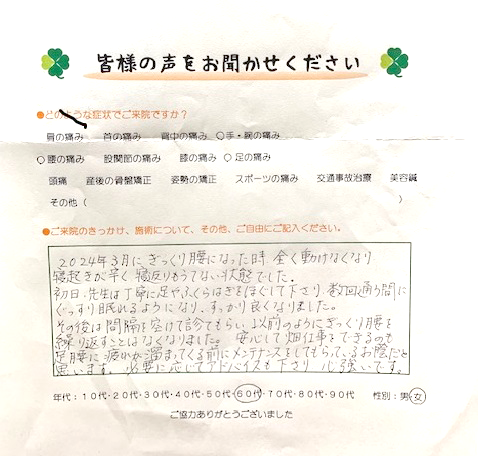 皆様の声をお聞かせください
●どのような症状でご来院ですか?
肩の痛み 首の痛み 背中の痛み ○手・腕の痛み
○腰の痛み 股関節の痛み 膝の痛み ○足の痛み
頭痛 産後の骨盤矯正 姿勢の矯正 スポーツの痛み 交通事故治療 美容鍼
その他( )
●ご来院のきっかけ、施術について、その他、ご自由にご記入ください。
2024年3月にぎっくり腰になった時 全く動けなくなり
寝起きが辛く寝返りもうてない状態でした.
初日.先生は丁寧に足やふくらはぎをほぐして下さり.数回通う間に
ぐっすり眠れるようになり.すっかり良くなりました。
その後は間隔を空けて診てもらい.以前のようにぎっくり腰を
繰り返すことはなくなりました。安心して畑仕事をできるのも
足腰に疲れが溜まってくる前にメンテナンスをしてもらっているお陰だと
思います。必要に応じてアドバイスも下さり 心強いです。
年代:10代・20代・30代・40代・50代・60代・70代・80代・90代 性別:男・女
ご協力ありがとうございました